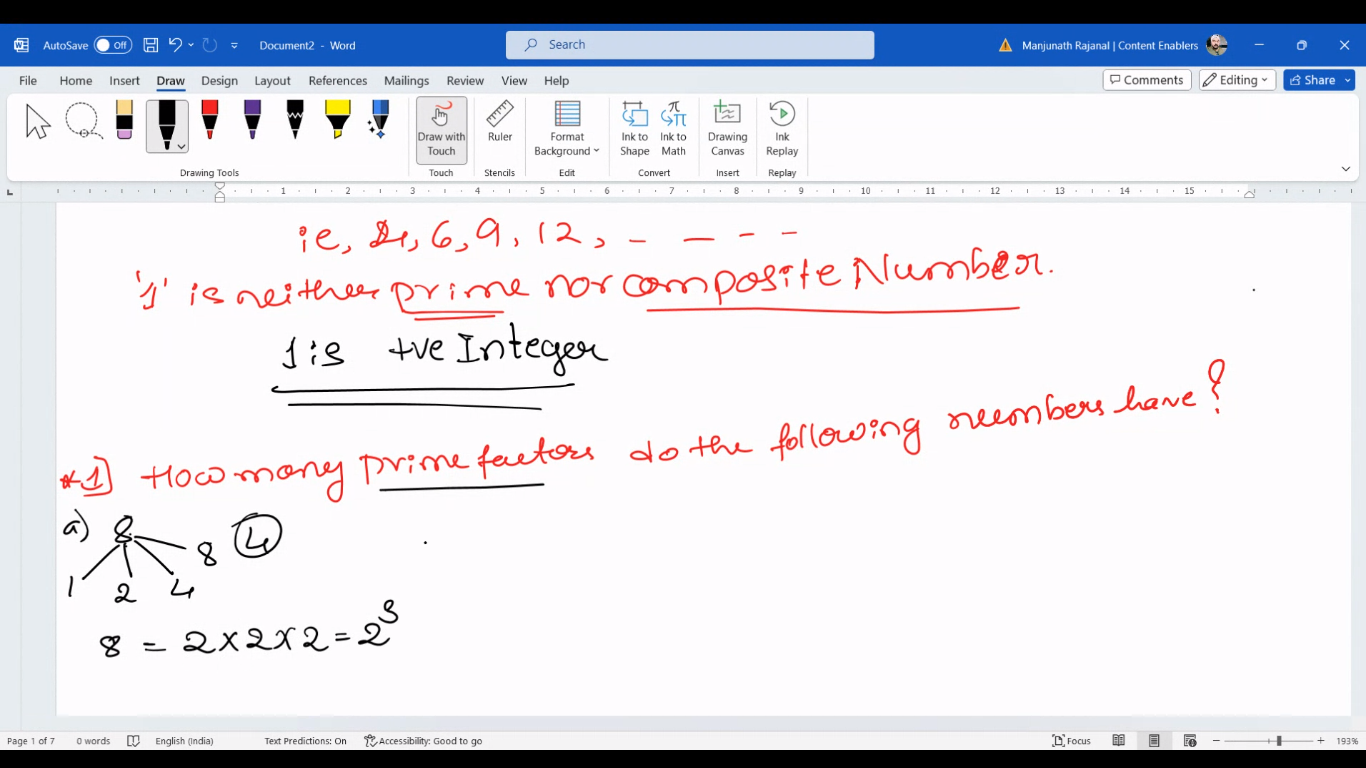 AutoSave Off Document2 - Word Search Manjunath Rajanal | Content Enablers
File Home Insert Draw Design Layout References Mailings Review View Help Comments Editing Share
Draw with Touch Ruler Format Background Ink to Shape Ink to Math Drawing Canvas Ink Replay
Drawing Tools Touch Stencils Edit Convert Insert Replay
1 2 3 4 5 6 7 8 9 10 11 12 13 14 15
ie, 4, 6, 9, 12, - - - -
'1' is neither prime nor composite Number.
1 is +ve Integer
*1] How many prime factors do the following numbers have?
a) 8 8 4
1 2 4
8 = 2 x 2 x 2 = 2³
Page 1 of 7 0 words English (India) Text Predictions: On Accessibility: Good to go Focus 193%